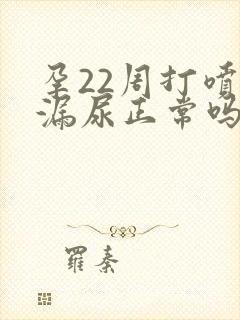 孕22周打喷
漏尿正常吗
羅泰